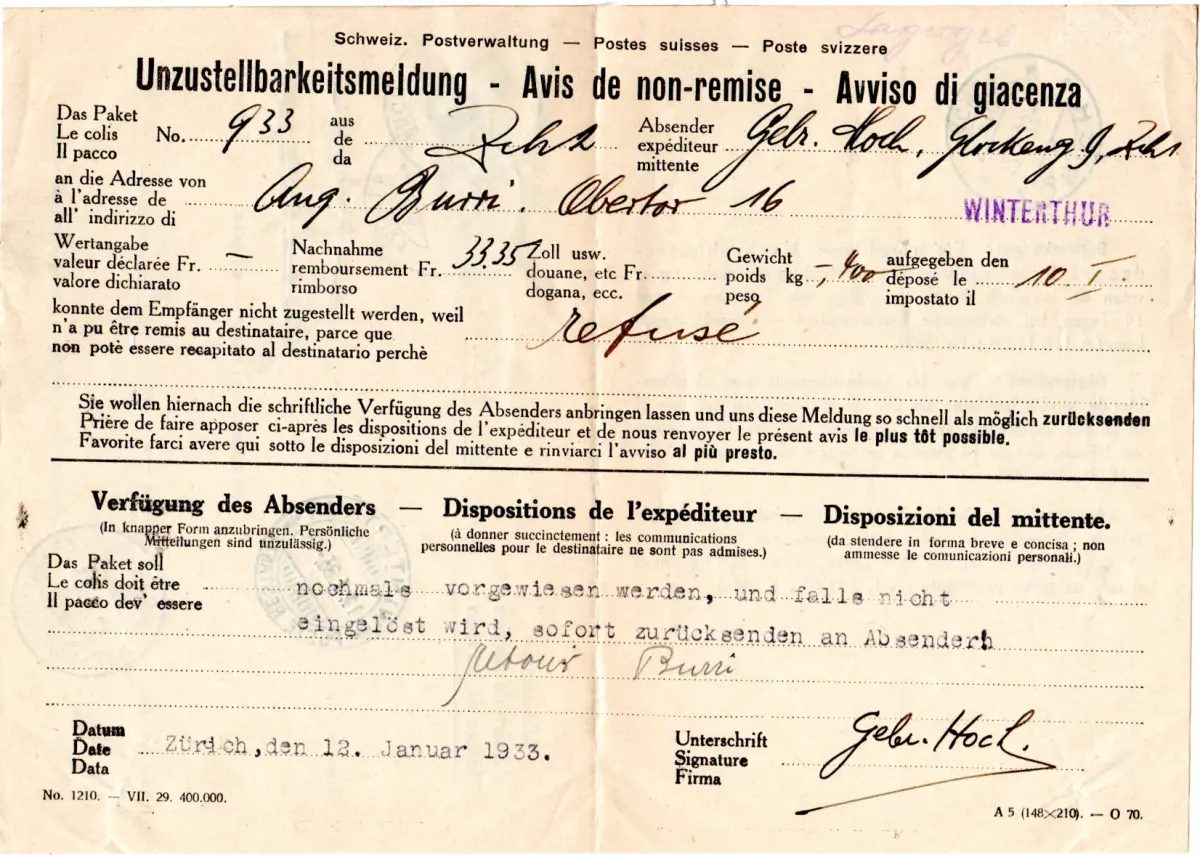 Schweiz. Postverwaltung — Postes suisses — Poste svizzere
Unzustellbarkeitsmeldung - Avis de non-remise - Avviso di giacenza
Das Paket
Le colis
Il pacco
No. 933
aus
de
da
Absender
expéditeur
mittente
Gebr. Hoch, Glockeng 9,
an die Adresse von
à l'adresse de
all' indirizzo di
Aug. Burri. Obertor 16
WINTERTHUR
Wertangabe
valeur déclarée Fr. —
valore dichiarato
Nachnahme
remboursement Fr. 33.35
rimborso
Zoll usw.
douane, etc Fr.
dogana, ecc.
Gewicht
poids kg. -,400
peso
aufgegeben den
déposé le 10. I.
impostato il
konnte dem Empfänger nicht zugestellt werden, weil
n'a pu être remis au destinataire, parce que
non potè essere recapitato al destinatario perchè
refusé
Sie wollen hiernach die schriftliche Verfügung des Absenders anbringen lassen und uns diese Meldung so schnell als möglich zurücksenden
Prière de faire apposer ci-après les dispositions de l'expéditeur et de nous renvoyer le présent avis le plus tôt possible.
Favorite farci avere qui sotto le disposizioni del mittente e rinviarci l'avviso al più presto.
Verfügung des Absenders — Dispositions de l'expéditeur — Disposizioni del mittente.
(In knapper Form anzubringen. Persönliche
Mitteilungen sind unzulässig.)
(à donner succinctement : les communications
personnelles pour le destinataire ne sont pas admises.)
(da stendere in forma breve e concisa ; non
ammesse le comunicazioni personali.)
Das Paket soll
Le colis doit être
Il pacco dev' essere
nochmals vorgewiesen werden, und falls nicht
eingelöst wird, sofort zurücksenden an Absender!
retour Burri
Datum
Date
Data
Zürich,den 12. Januar 1933.
Unterschrift
Signature
Firma
Gebr. Hoch.
No. 1210. — VII. 29. 400.000.
A 5 (148×210). — O 70.